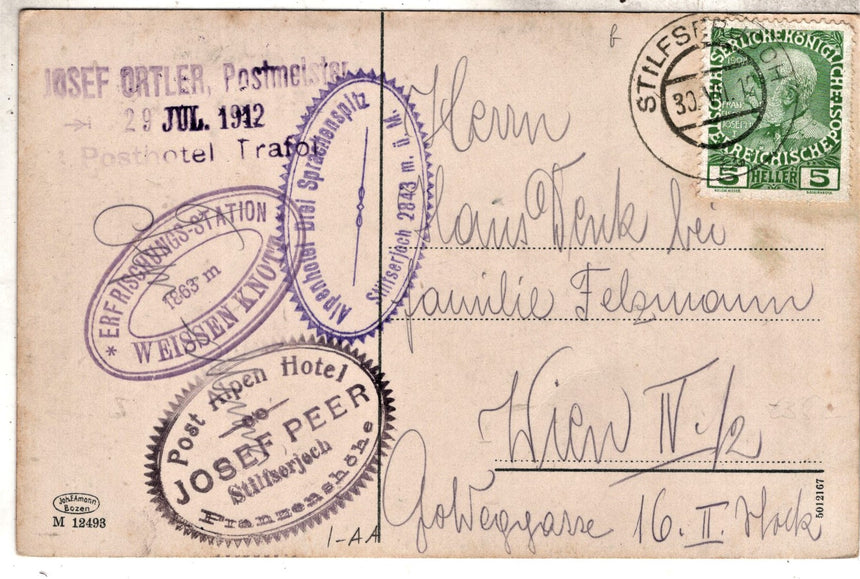 JOSEF ORTLER, Postmeister
29 JUL. 1912
Posthotel Trafoi
Alpenhotel Drei Sprachenspitz
Stilfserjoch 2843 m. ü. M.
* ERFRISCHUNGS-STATION
1863 m
WEISSEN KNOTT
Post Alpen Hotel
JOSEF PEER
Stilfserjoch
Franzenshöhe
Joh. F. Amonn
Bozen
M 12493
1-AA
STILFSERJOCH
30
12
1908
FRANZ
JOSEF I
KAISERLICHE KÖNIGLICHE
ÖSTERREICHISCHE POST
5 HELLER 5
Herrn
Hans Denk bei
Familie Felzmann
Wien IV/2
16. II. Stock
5012167